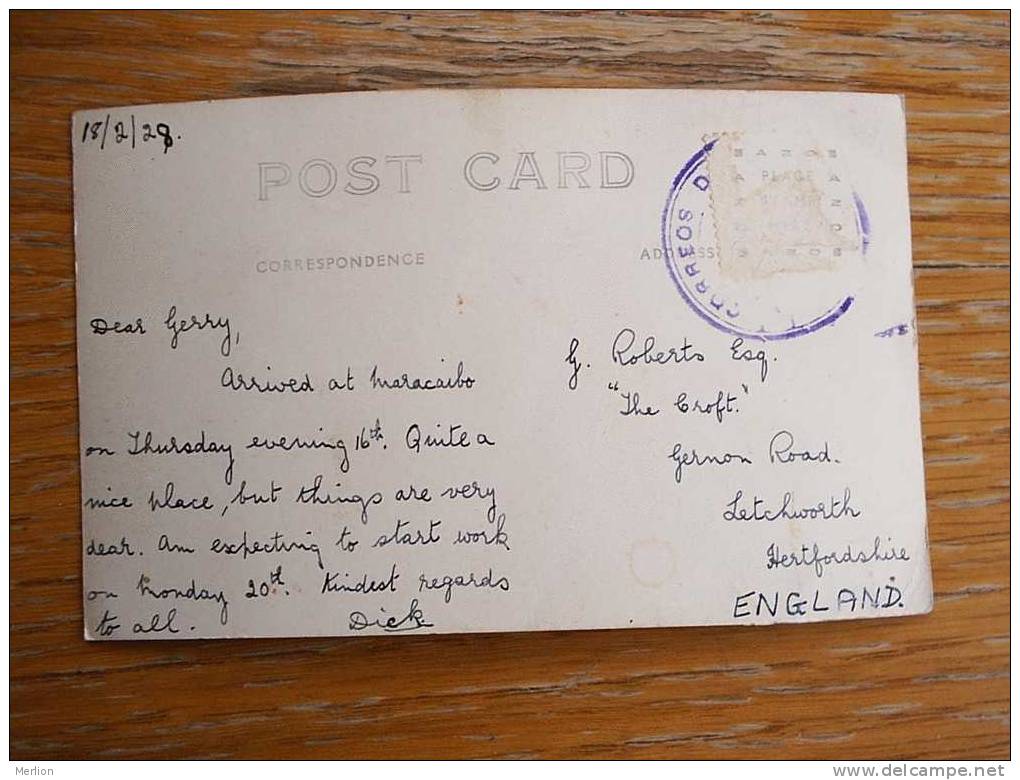 18/2/28.
POST CARD
CORREOS D
PLACE
STAMP
CORRESPONDENCE
Dear Gerry,
Arrived at Maracaibo
on Thursday evening 16th. Quite a
nice place, but things are very
dear. Am expecting to start work
on Monday 20th. Kindest regards
to all. Dick
G. Roberts Esq.
"The Croft."
Gernon Road.
Letchworth
Hertfordshire
ENGLAND.
Merlion
www.delcampe.net